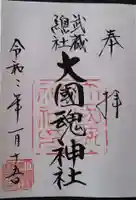 奉拝
武蔵
總社
大國魂神社
令和二年一月十五日